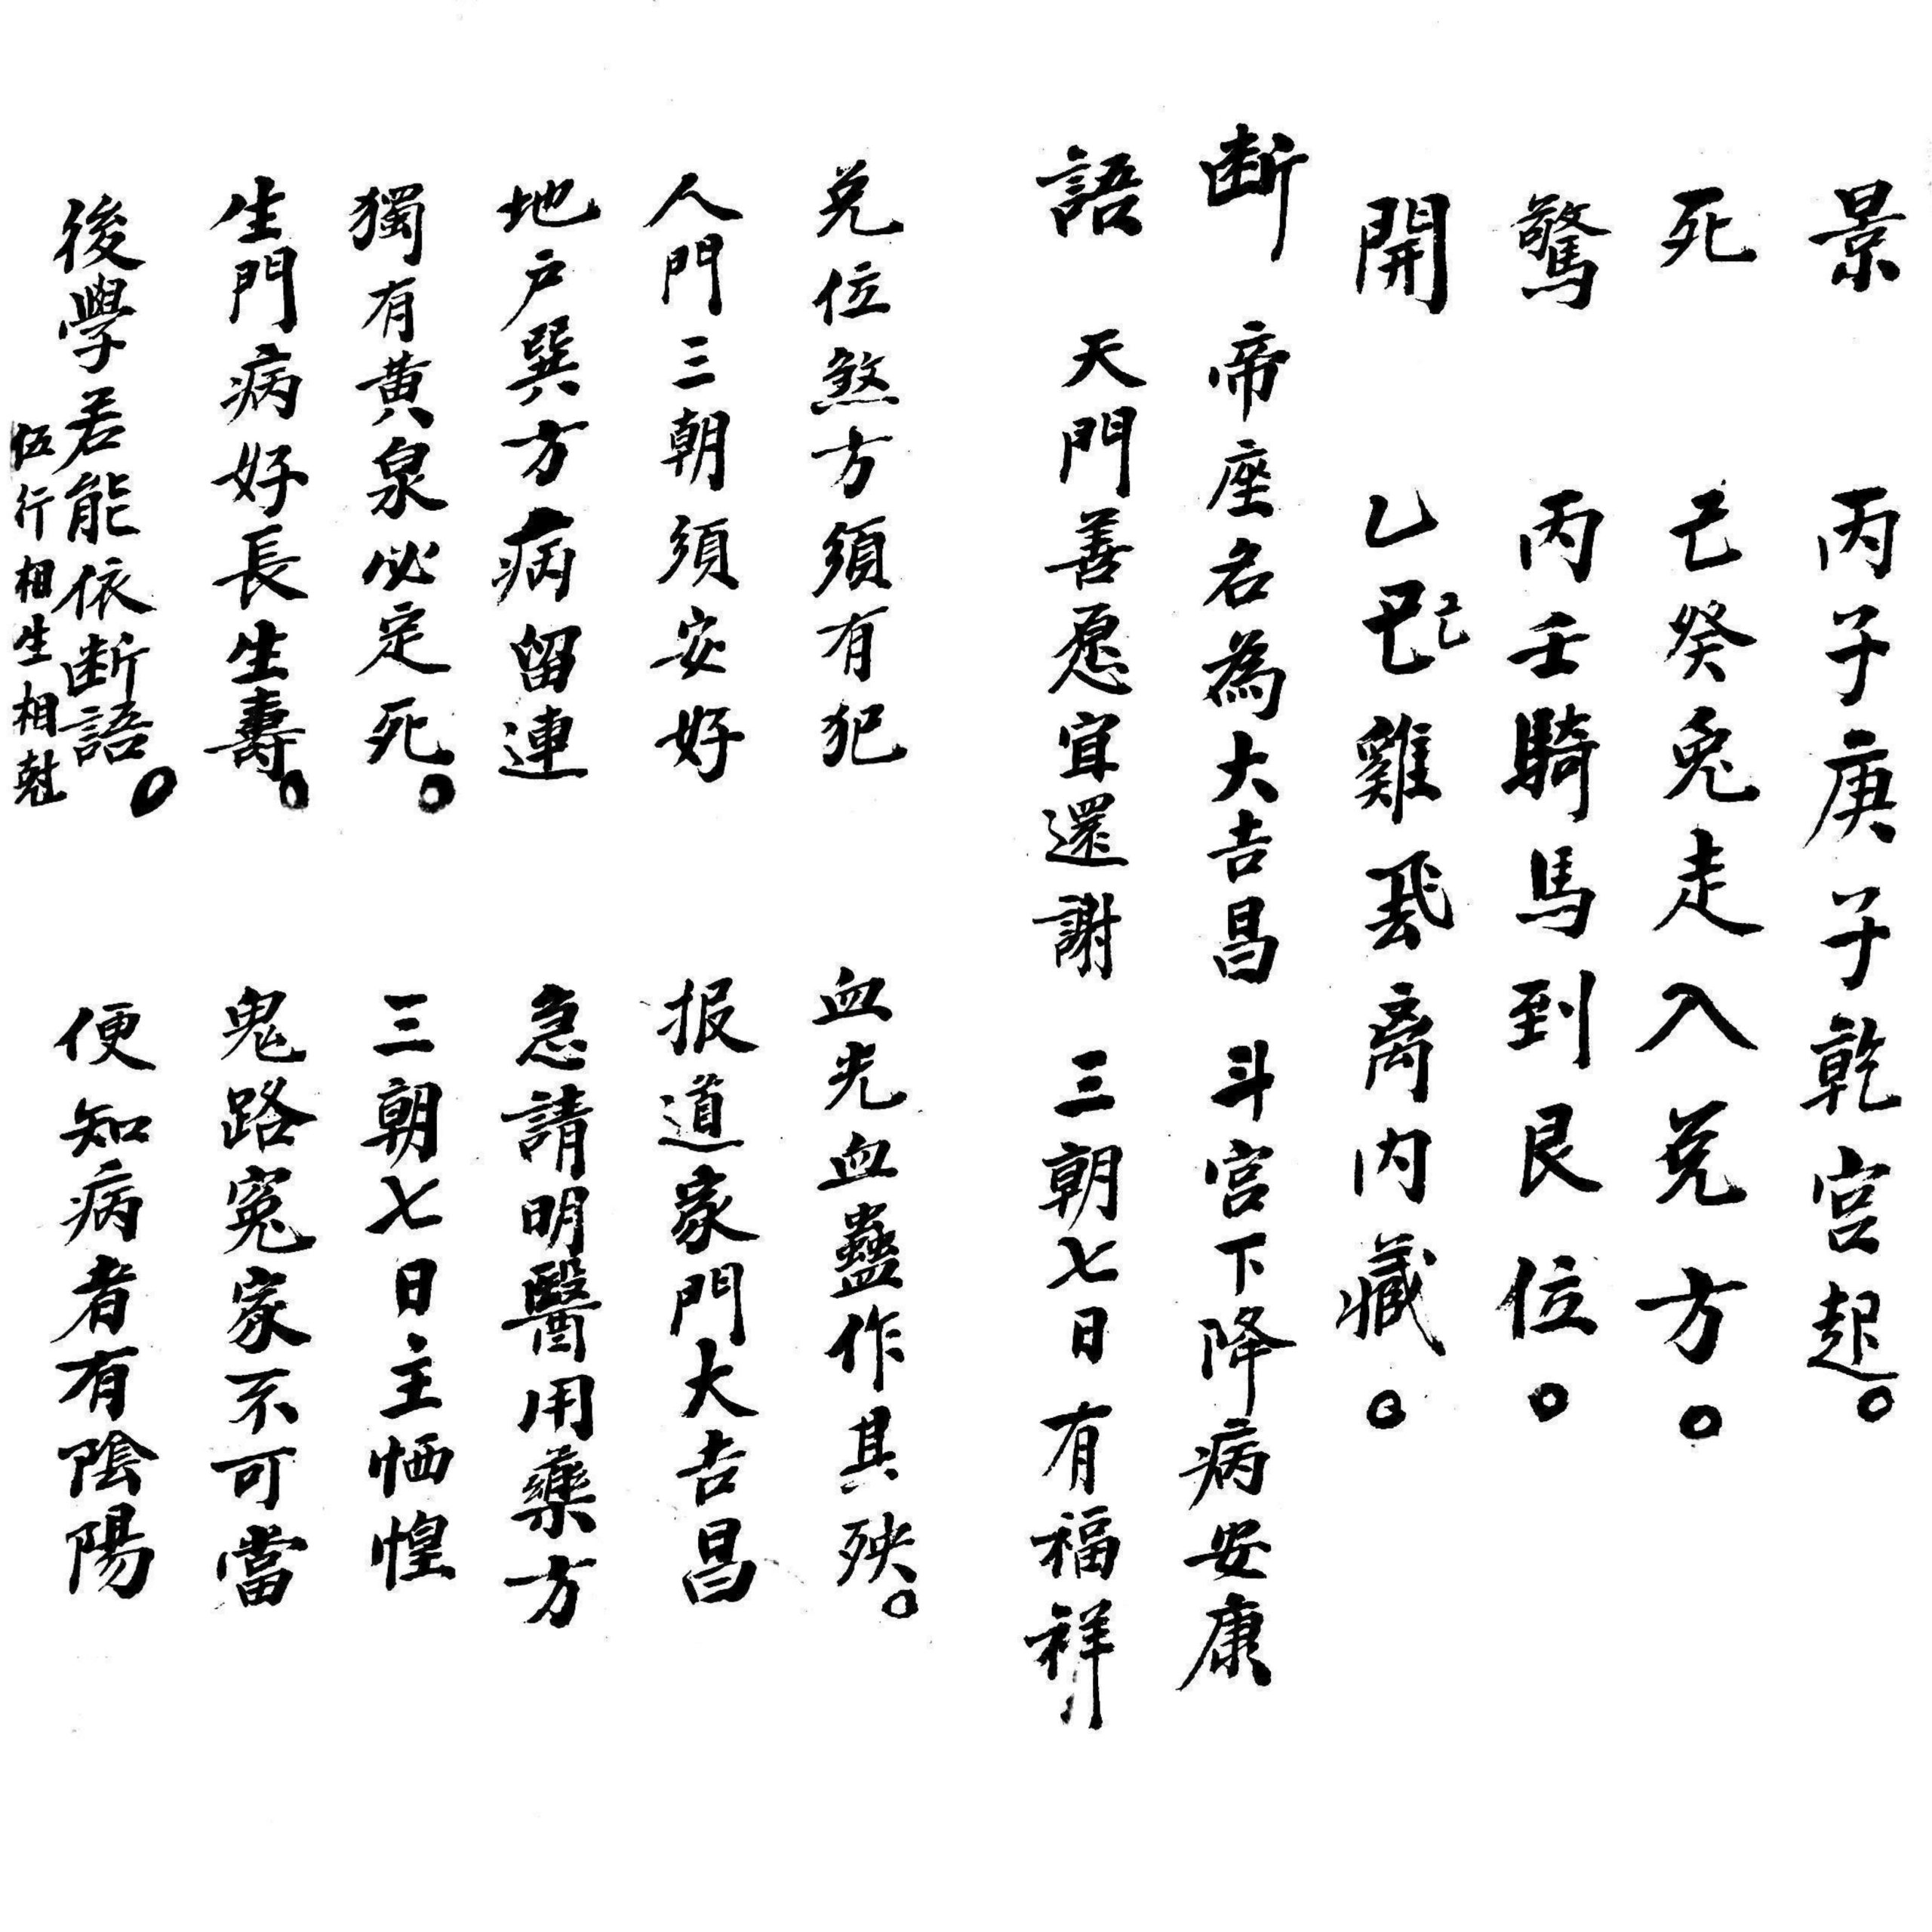 景 丙子庚子乾宫起。
死 己癸兔走入兑方。
驚 丙壬騎馬到艮位。
開 乙巳雞飛离内藏。
断 帝座名為大吉昌 斗宫下降病安康
語 天門善愿宜還謝 三朝七日有福祥
兑位煞方須有犯 血光血蠱作其殃。
人門三朝須安好 报道家門大吉昌
地户巽方病留連 急請明醫用藥方
獨有黄泉必定死。 三朝七日主恓惶
生門病好長生壽。 鬼路寃家不可當
後學若能依断語。 便知病者有陰陽
伍行相生相尅